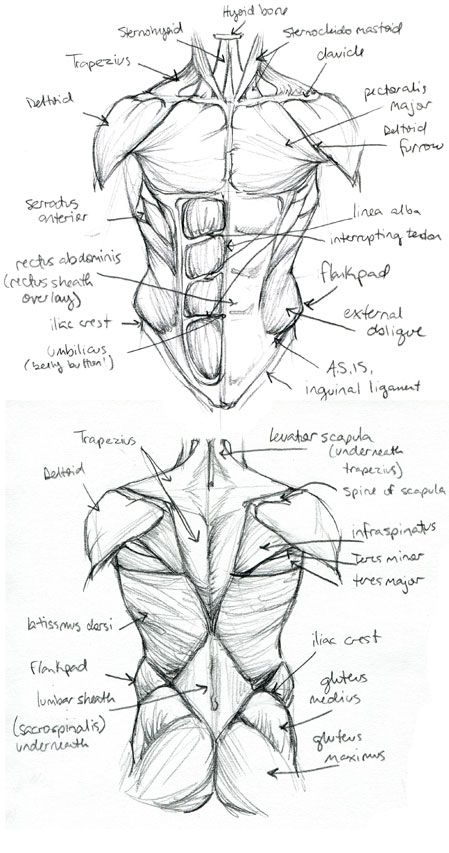 Hyoid bone
Sternohyoid
Sternocleido mastoid
Trapezius
clavicle
Deltoid
pectoralis
major
Deltoid
furrow
serratus
anterior
linea alba
interrupting tendon
rectus abdominis
(rectus sheath
overlay)
flankpad
iliac crest
external
oblique
umbilicus
(belly button!)
A.S.I.S,
inguinal ligament
Trapezius
levator scapula
(underneath
trapezius)
Deltoid
spine of scapula
infraspinatus
Teres minor
teres major
latissmus dorsi
iliac crest
flankpad
gluteus
medius
lumbar sheath
(sacrospinalis)
underneath
gluteus
maximus